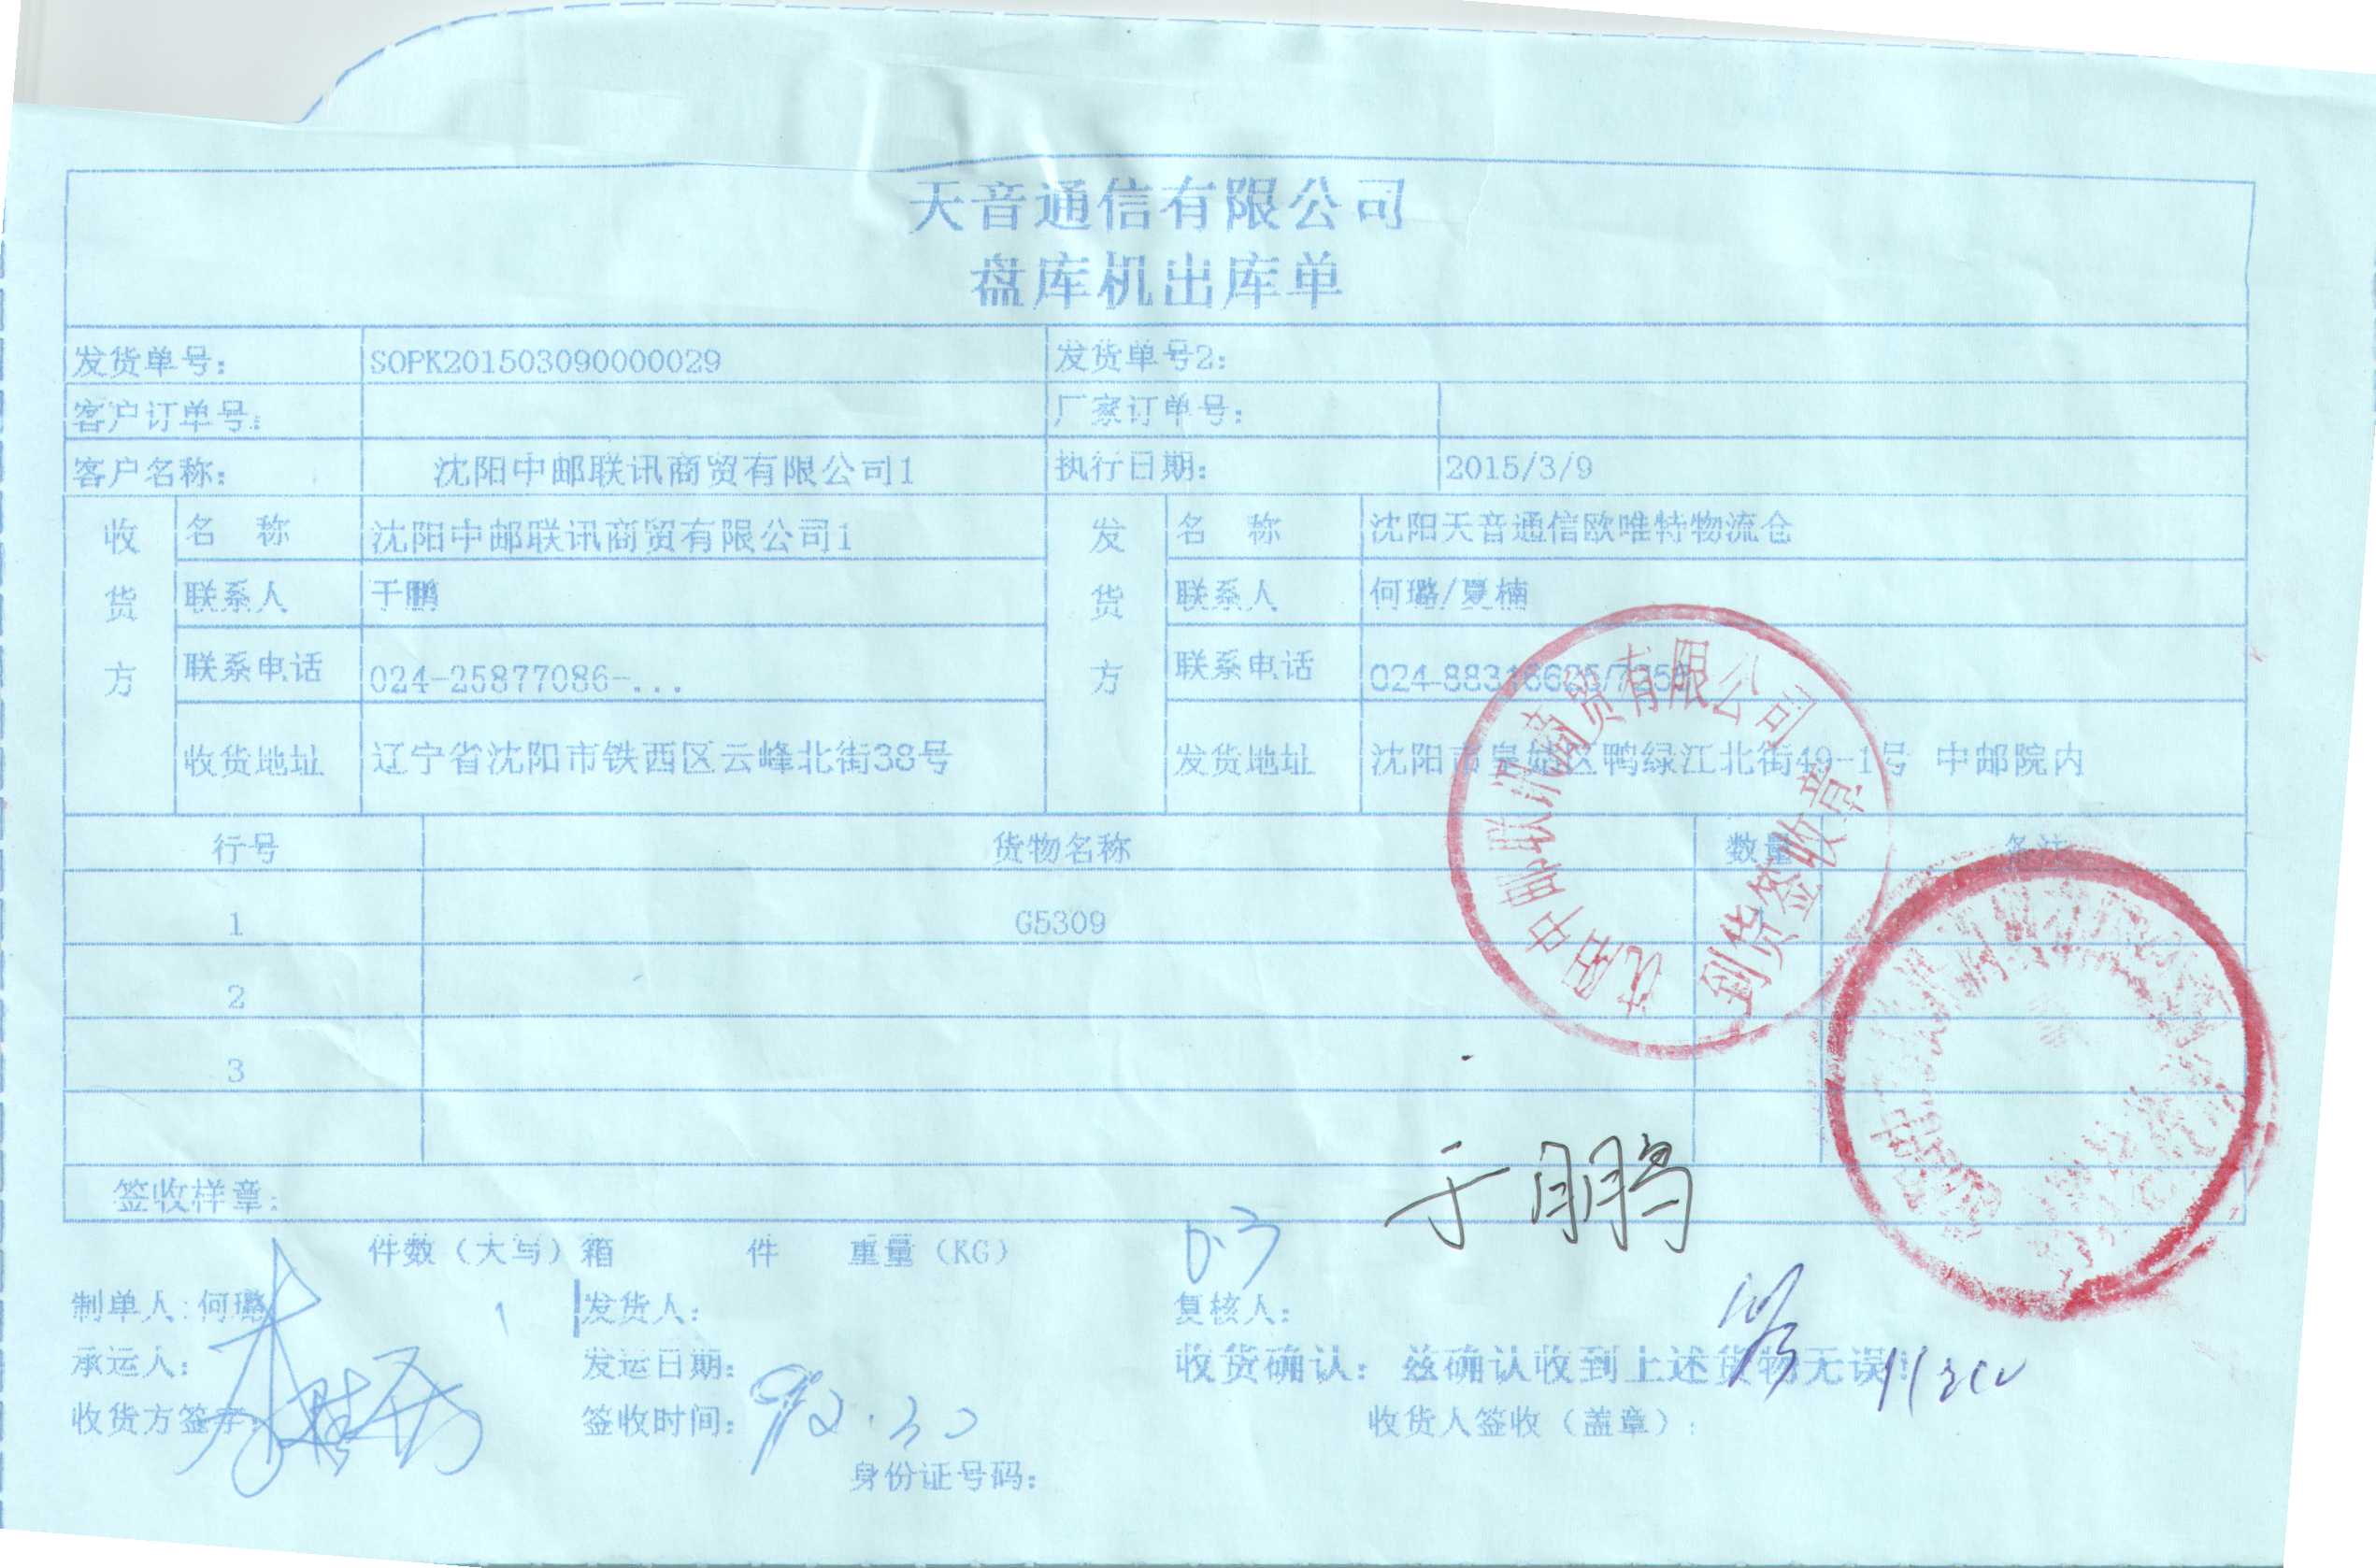 天音通信有限公司
盘库机出库单
发货单号: SOPK201503090000029 发货单号2:
客户订单号: 厂家订单号:
客户名称: 沈阳中邮联讯商贸有限公司1 执行日期: 2015/3/9
收货方 名 称 沈阳中邮联讯商贸有限公司1 发货方 名 称 沈阳天音通信欧唯特物流仓
联系人 于鹏 联系人 何璐/夏楠
联系电话 024-25877086-... 联系电话
收货地址 辽宁省沈阳市铁西区云峰北街38号 发货地址 沈阳市皇姑区鸭绿江北街49-1号 中邮院内
行号 货物名称 数量 备注
1 G5309
2
3
沈阳中邮联讯商贸有限公司
到货签收章
于鹏
签收样章:
件数（大写）箱 件 重量（KG）
制单人:何璐 发货人: 复核人:
承运人: 发运日期: 收货确认: 兹确认收到上述货物无误!
收货方签字: 签收时间: 收货人签收（盖章）:
身份证号码: